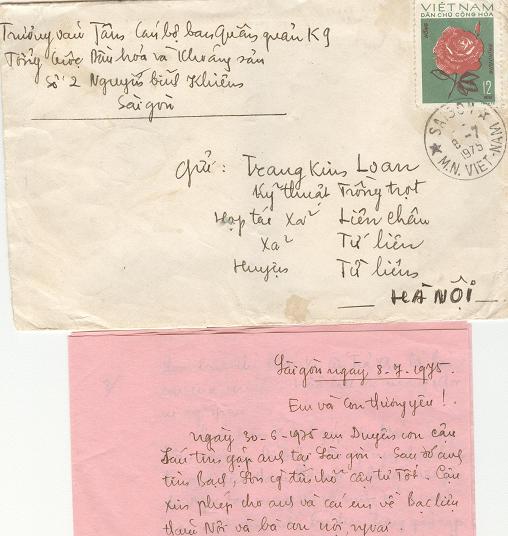 Trương văn Tân Cán bộ ban Quân quản K9
Tổng cục Dầu hóa và Khoáng sản
Số 2 Nguyễn bỉnh Khiêm
Sài gòn
VIỆT NAM
DÂN CHỦ CỘNG HÒA
12
SAIGON
8-7
1975
M.N. VIET-NAM
Gửi: Trang Kim Loan
Kỹ thuật Trồng trọt
Hợp tác Xã Liên châu
Xã Tứ liên
Huyện Từ liêm
HÀ NỘI
Sài gòn ngày 8-7-1975.
Em và Con thương yêu!
Ngày 30-6-1975 em Duyên con cậu
Sáu tìm gặp anh tại Sài gòn. Sau đó anh
tìm Bạch, Sơn cả từ chỗ cậu tư Tốt. Cậu
xin phép cho anh và các em về Bạc liêu
thăm Nội và bà con nội, ngoại.